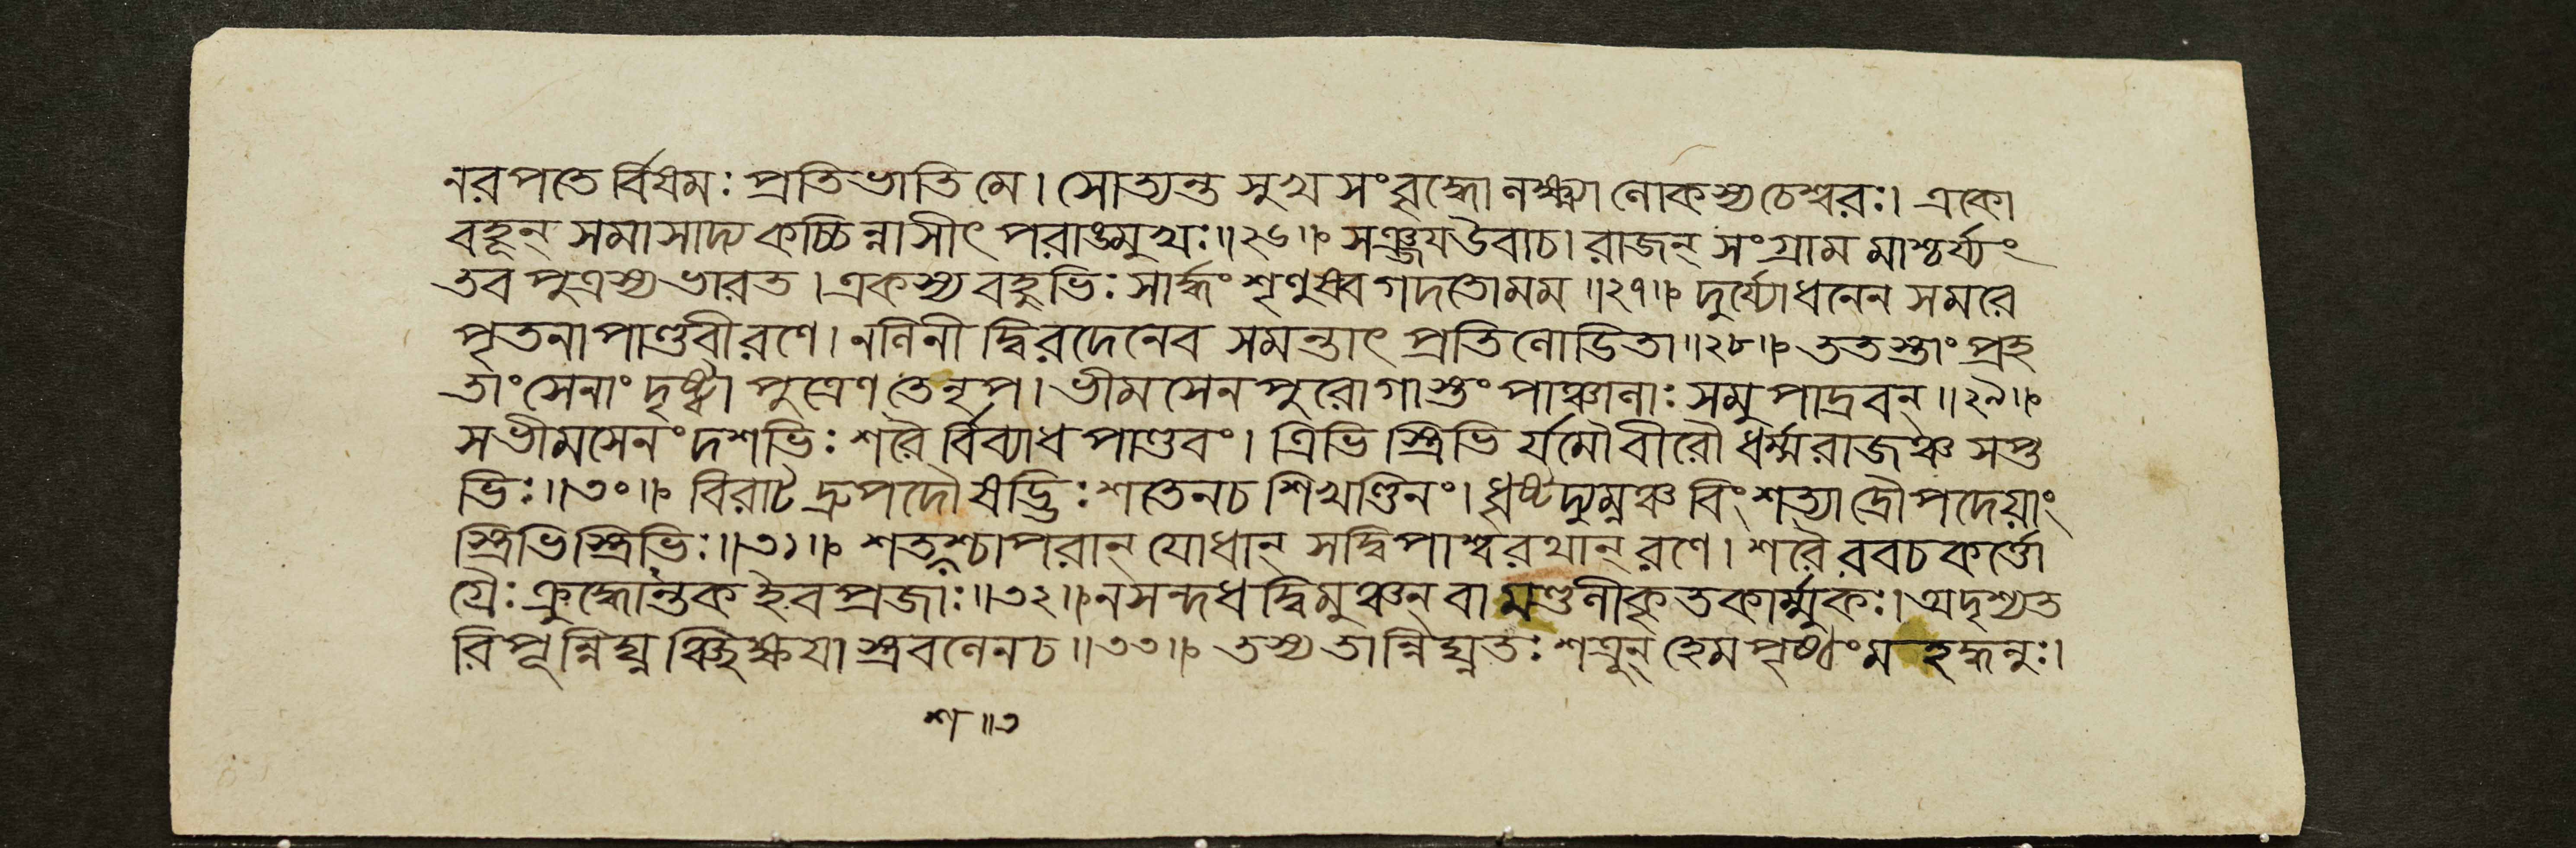 নরপতের্বিষমঃ প্রতিভাতি মে। সোত্যন্ত সুখ সংবৃদ্ধো লক্ষ্ম্যা লোকস্য চেশ্বরঃ। একো
বহূন্ সমাসাদ্য কচ্চিন্নাসীৎ পরাঙমুখঃ॥২৬॥ সঞ্জয উবাচ। রাজন্ সংগ্রাম মাশ্চর্য্যং
তব পুত্রস্য ভারত। একস্য বহুভিঃ সার্দ্ধং শৃণুষ্ব গদতোমম॥২৭॥ দুর্য্যোধনেন সমরে
পৃতনা পাণ্ডবী রণে। নলিনী দ্বিরদেনেব সমন্তাৎ প্রতিলোডিতা॥২৮॥ ততস্তাং প্রহ
তাং সেনাং দৃষ্ট্বা পুত্রেণ তে নৃপ। ভীমসেন পুরোগাস্তং পাঞ্চালাঃ সমুপাদ্রবন্॥২৯॥
স ভীমসেনং দশভিঃ শরৈর্বিব্যাধ পাণ্ডবং। ত্রিভিস্ত্রিভির্যমৌ বীরৌ ধর্ম্মরাজঞ্চ সপ্ত
ভিঃ॥৩০॥ বিরাট দ্রুপদৌ ষড্ভিঃ শতেন চ শিখণ্ডিনং। ধৃষ্টদ্যুম্নঞ্চ বিংশত্যা দ্রৌপদেয়াং
স্ত্রিভিস্ত্রিভিঃ॥৩১॥ শতশ্চাপরান্ যোধান্ সদ্বিপাশ্বরথান্ রণে। শরৈরবচকর্ত্তো
গ্রৈঃ ক্রুদ্ধোন্তক ইব প্রজাঃ॥৩২॥ ন সন্দধদ্বিমুঞ্চন্ বা মণ্ডলীকৃতকার্ম্মুকঃ। অদৃশ্যত
রিপূন্নিঘ্নঞ্চিক্ষযাস্ত্রবলেন চ॥৩৩॥ তস্য তান্নিঘ্নতঃ শত্রূন্ হেমপৃষ্ঠং মহদ্ধনুঃ।
শ॥৩